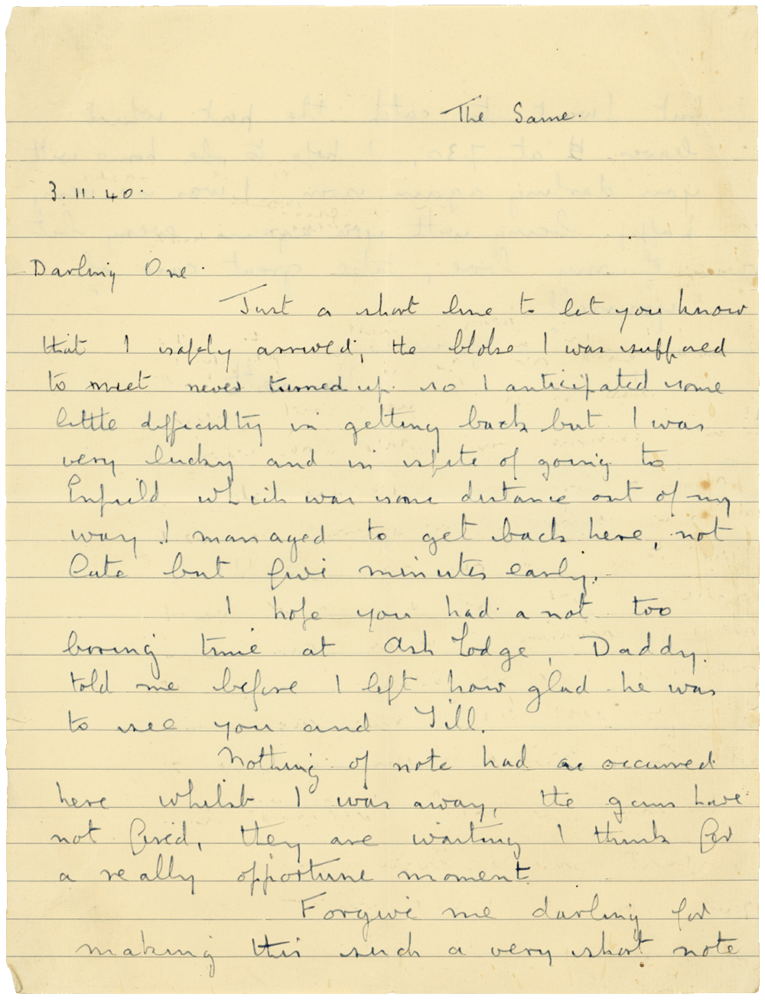 The Same.
3.11.40.
Darling One.
Just a short line to let you know
that I safely arrived, the bloke I was supposed
to meet never turned up. so I anticipated some
little difficulty in getting back but I was
very lucky and in spite of going to
Enfield which was some distance out of my
way I managed to get back here, not
late but five minutes early.
I hope you had a not too
boring time at Ash Lodge, Daddy.
told me before I left how glad he was
to see you and Jill.
Nothing of note had occurred
here whilst I was away, the guns have
not fired, they are waiting I think for
a really opportune moment.
Forgive me darling for
making this such a very short note